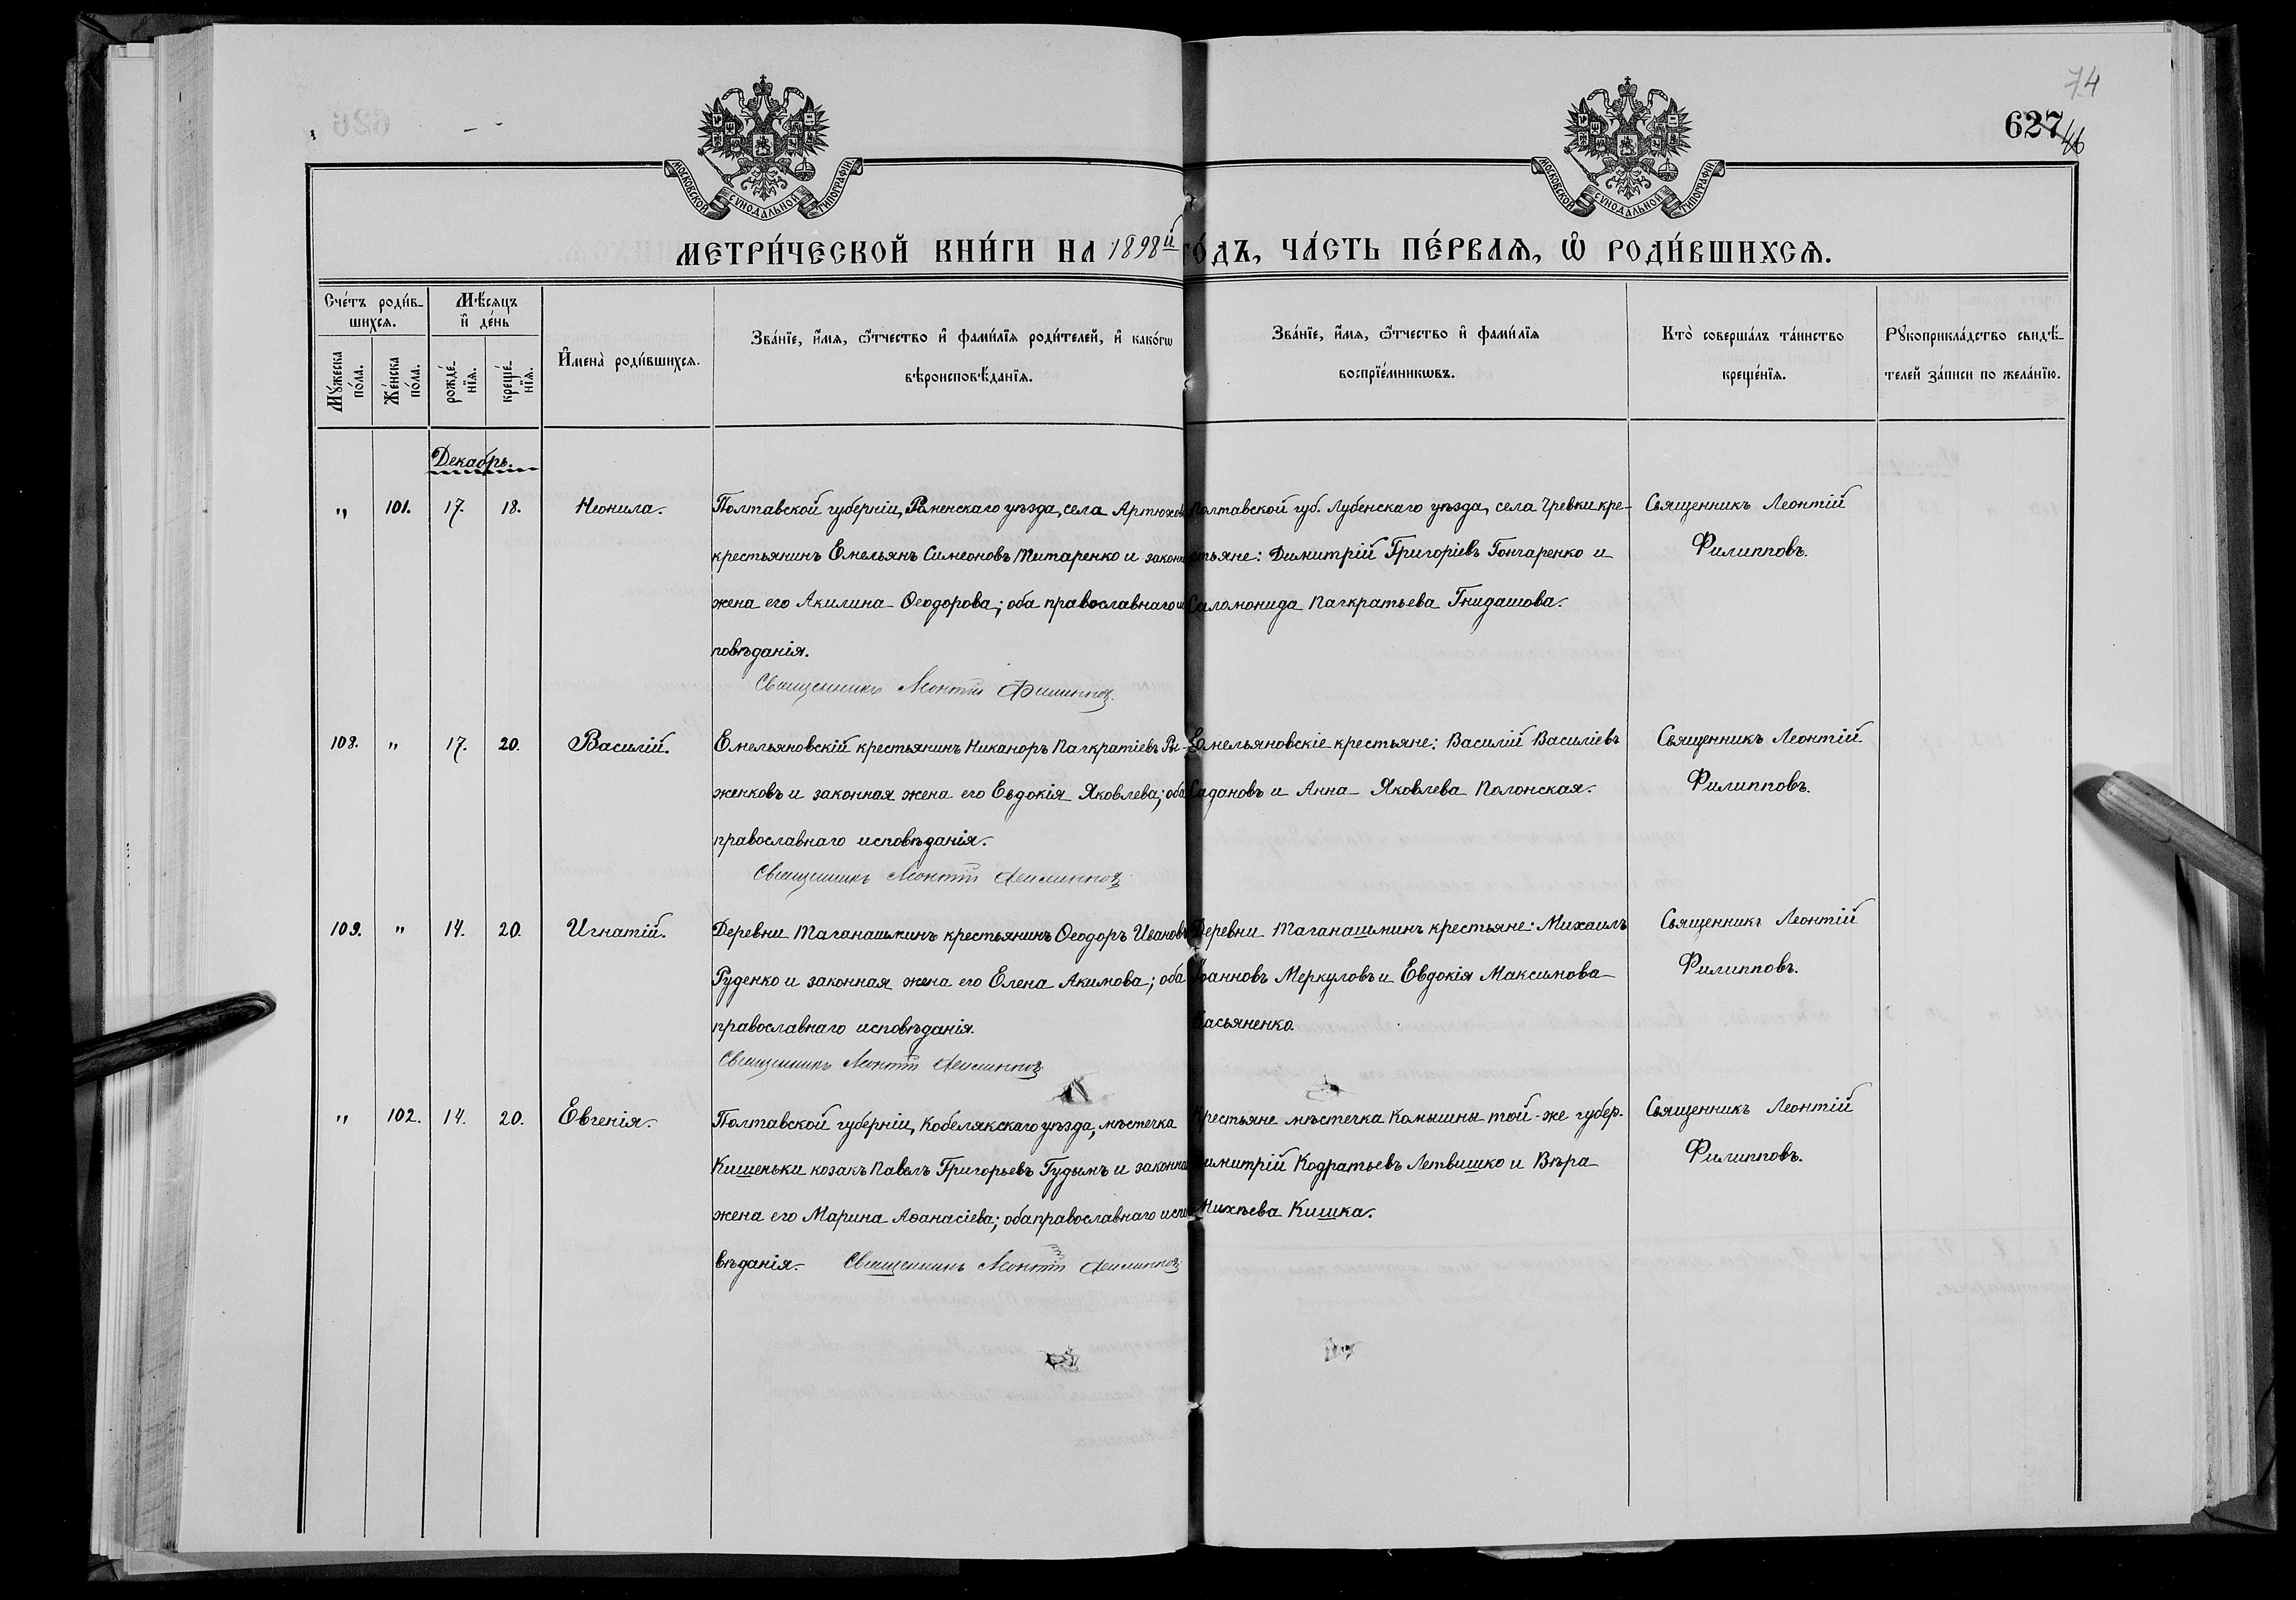 74
627
46
МОСКОВСКОЙ СѴНОДАЛЬНОЙ ТИПОГРАФІИ
МОСКОВСКОЙ СѴНОДАЛЬНОЙ ТИПОГРАФІИ
МЕТРИ́ЧЕСКОЙ КНИ́ГИ НА 1898й ГО́ДЪ, ЧА́СТЬ ПЕ́РВАѦ, Ѡ҆ РОДИ́ВШИХСѦ.
Сче́тъ роди́в-
шихсѧ.
Мꙋ́жеска по́ла.
Же́нска по́ла.
Мѣ́сѧцъ и҆ де́нь
рожде́-нїѧ.
креще́-нїѧ.
И҆мена̀ роди́вшихсѧ.
Зва́нїе, и҆́мѧ, ѻ҆́тчество и҆ фами́лїѧ роди́телей, и҆ како́гѡ
вѣроисповѣ́данїѧ.
Зва́нїе, и҆́мѧ, ѻ҆́тчество и҆ фами́лїѧ
воспрїе́мникѡвъ.
Кто̀ соверша́лъ та́инство
креще́нїѧ.
Рꙋкоприкла́дство свидѣ́-
телей за́писи по жела́нїю.
Декабрь.
" 101. 17. 18. Неонила. Полтавской губерніи, Роменскаго уѣзда, села Артюхов
крестьянинъ Емельянъ Симеоновъ Титаренко и законн
жена его Акилина Ѳеодорова; оба православнаго и
повѣданія.
Священникъ Леонтій Филиппов
Полтавской губ. Лубенскаго уѣзда, села Чревки кре-
стьяне: Димитрій Григоріевъ Гончаренко и
Саломонида Панкратьева Гнидашова.
Священникъ Леонтій
Филипповъ.
108. " 17. 20. Василій. Емельяновскій крестьянинъ Никаноръ Панкратіевъ Ры-
женковъ и законная жена его Евдокія Яковлева; оба
православнаго исповѣданія.
Священникъ Леонтій Филиппов
Емельяновскіе крестьяне: Василій Василіевъ
Садановъ и Анна Яковлева Полонская.
Священникъ Леонтій
Филипповъ.
109. " 14. 20. Игнатій. Деревни Таганашминъ крестьянинъ Ѳеодоръ Ивановъ
Руденко и законная жена его Елена Акимова; оба
православнаго исповѣданія.
Священникъ Леонтій Филиппов
Деревни Таганашминъ крестьяне: Михаилъ
Іоанновъ Меркуловъ и Евдокія Максимова
Касьяненко.
Священникъ Леонтій
Филипповъ.
" 102. 14. 20. Евгенія. Полтавской губерніи, Кобелякскаго уѣзда, мѣстечка
Кишеньки козакъ Павелъ Григорьевъ Гудымъ и законна
жена его Марина Аѳанасіева; оба православнаго испо
вѣданія. Священникъ Леонтій Филиппов
Крестьяне мѣстечка Комышны той-же губер.
Димитрій Кодратьевъ Летвишко и Вѣра
Михѣева Кишка.
Священникъ Леонтій
Филипповъ.